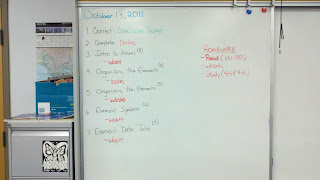 October 13, 2011
1. Correct: Good Luck Packet
2. Complete Notes
3. Intro to Atoms (3)
- wksht
4. Organizing the Elements (4)
- notes
5. Organizing the Elements (5)
- wksht
6. Element Symbols (6)
- wksht
7. Element Data Table (7)
- wksht
HOMEWORK
- Read
- wkshts
- Study (4.1 & 4.2)